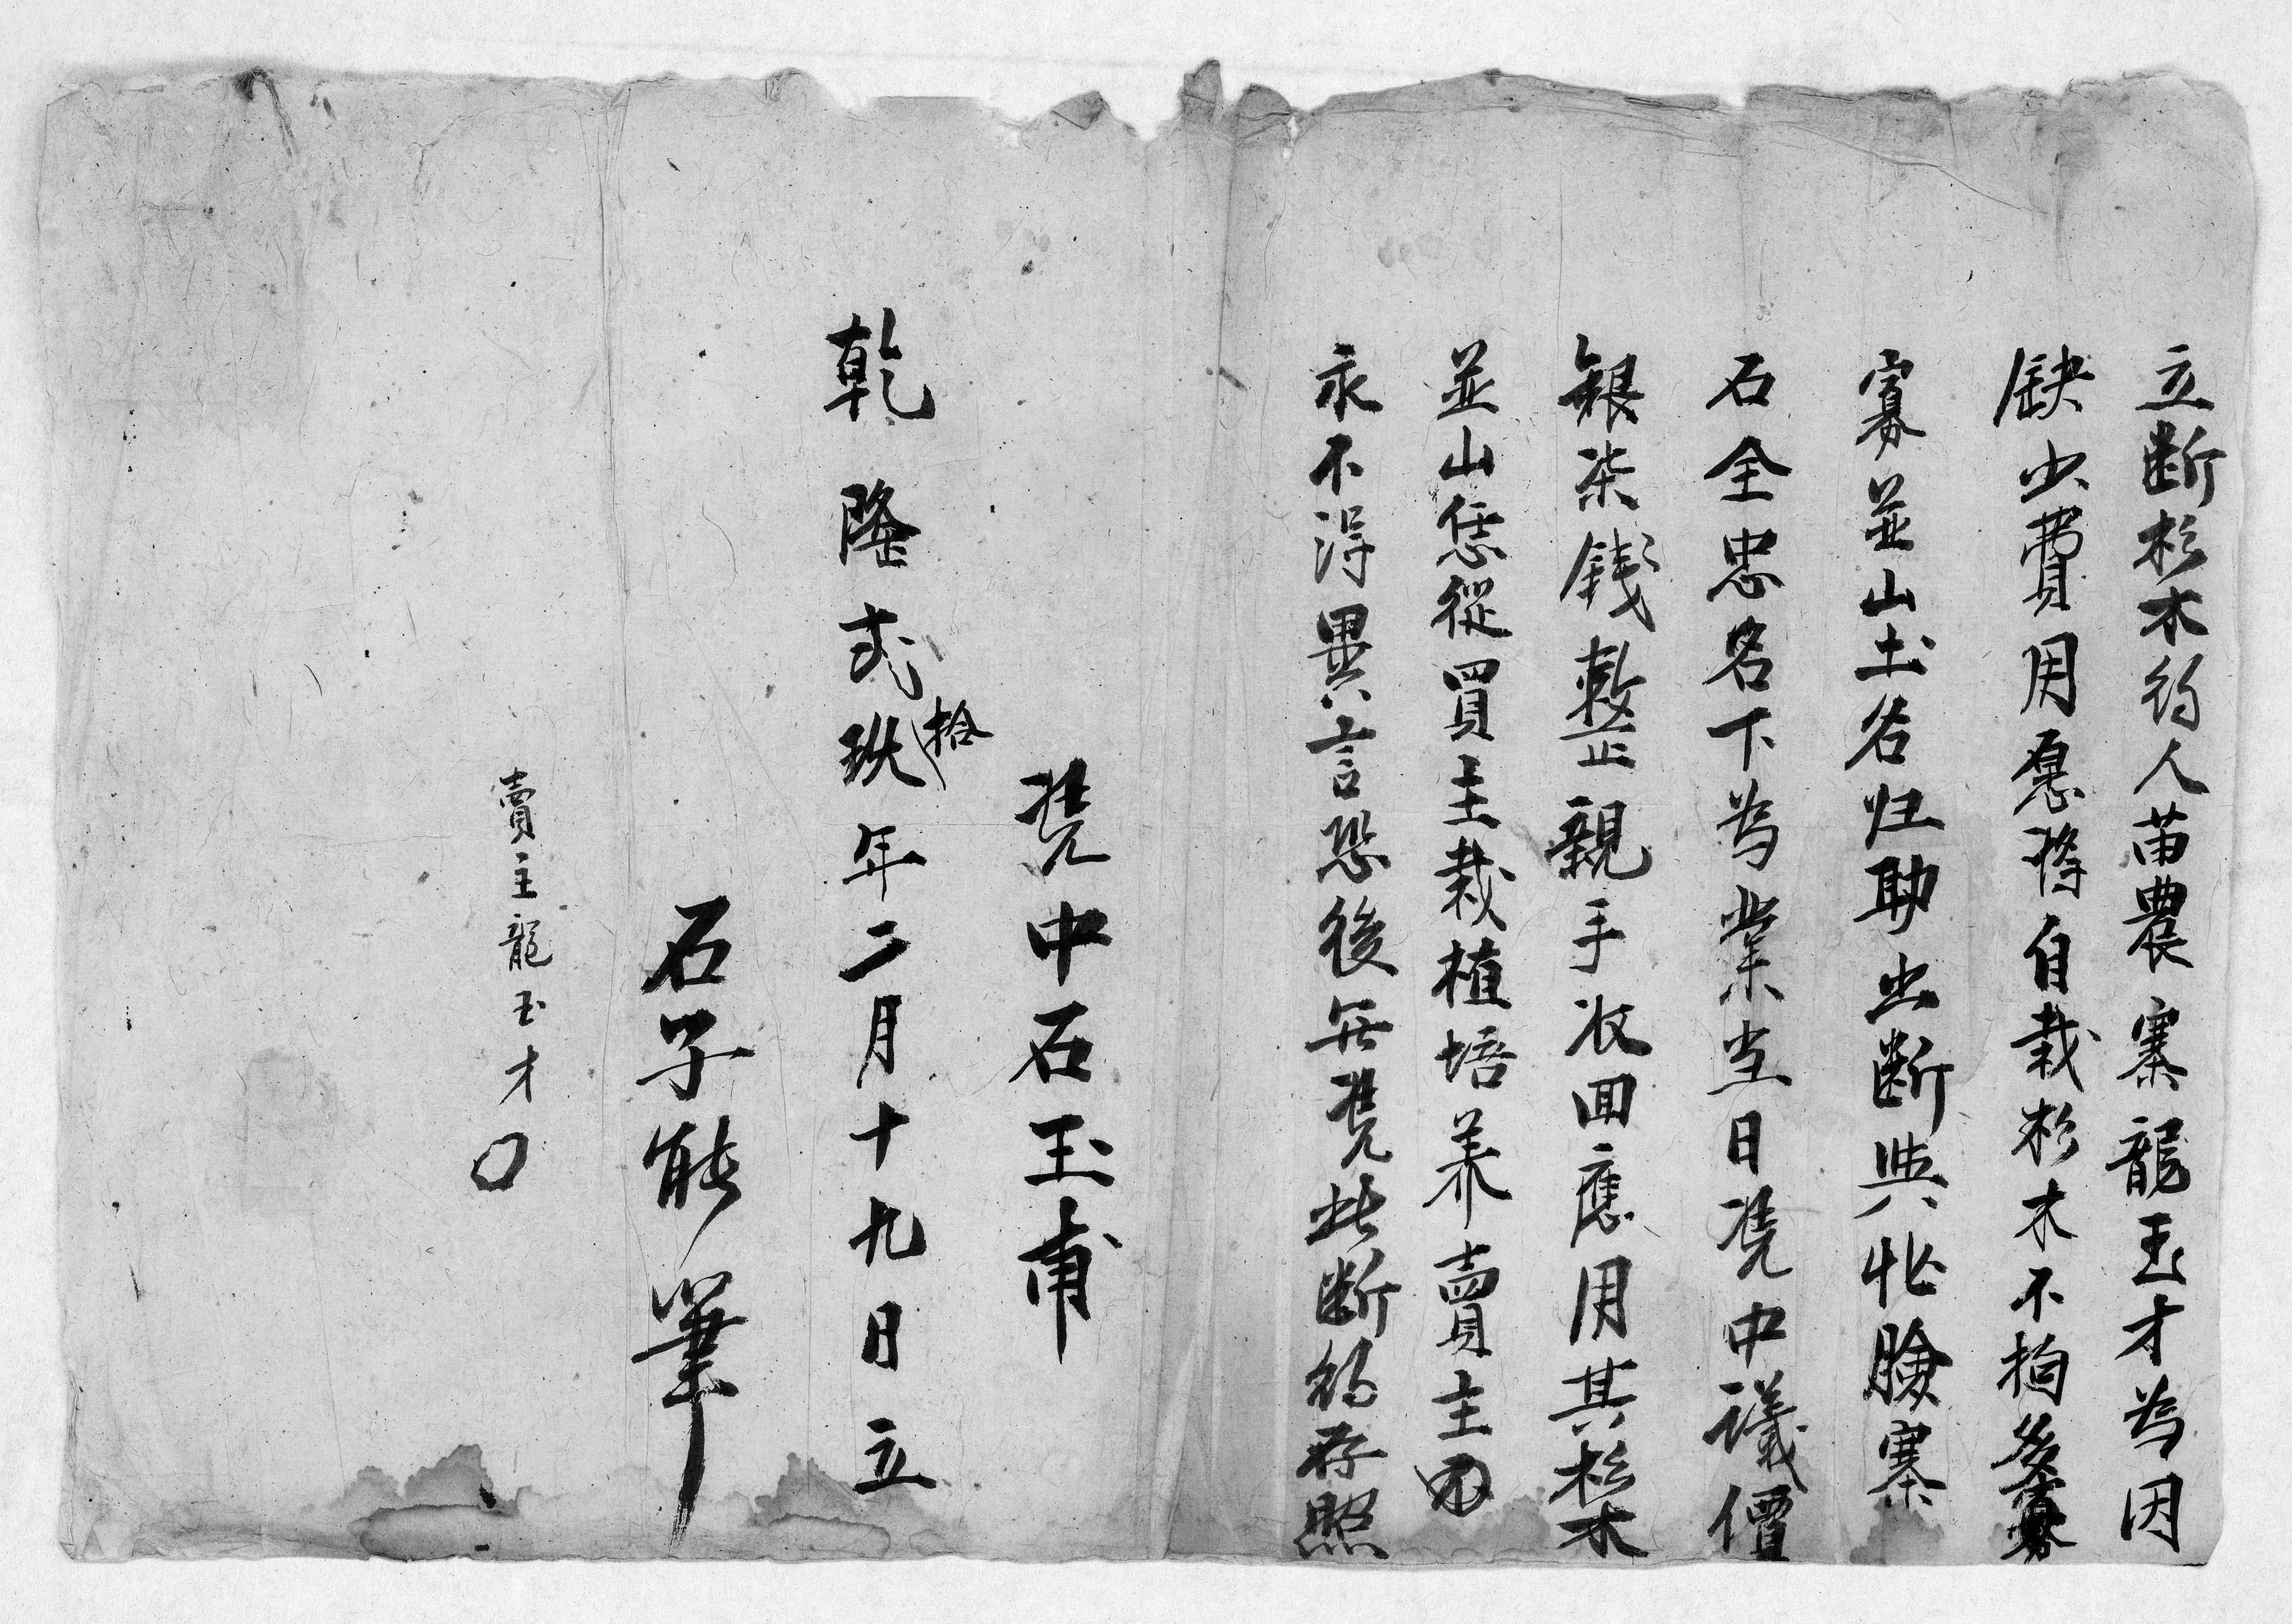 立断杉木約人苗農寨龍玉才為因
缺少費用愿將自栽杉木不拘多
寡並山土名归助出断與化臉寨
石全忠名下為業当日凴中議價
銀柒錢整親手收回應用其杉木
並山恁從買主栽植培养賣主
永不淂異言恐後無凴此断約存照
凴中石玉甫
乾隆式拾玖年二月十九日立
石子能筆
賣主龍玉才〇